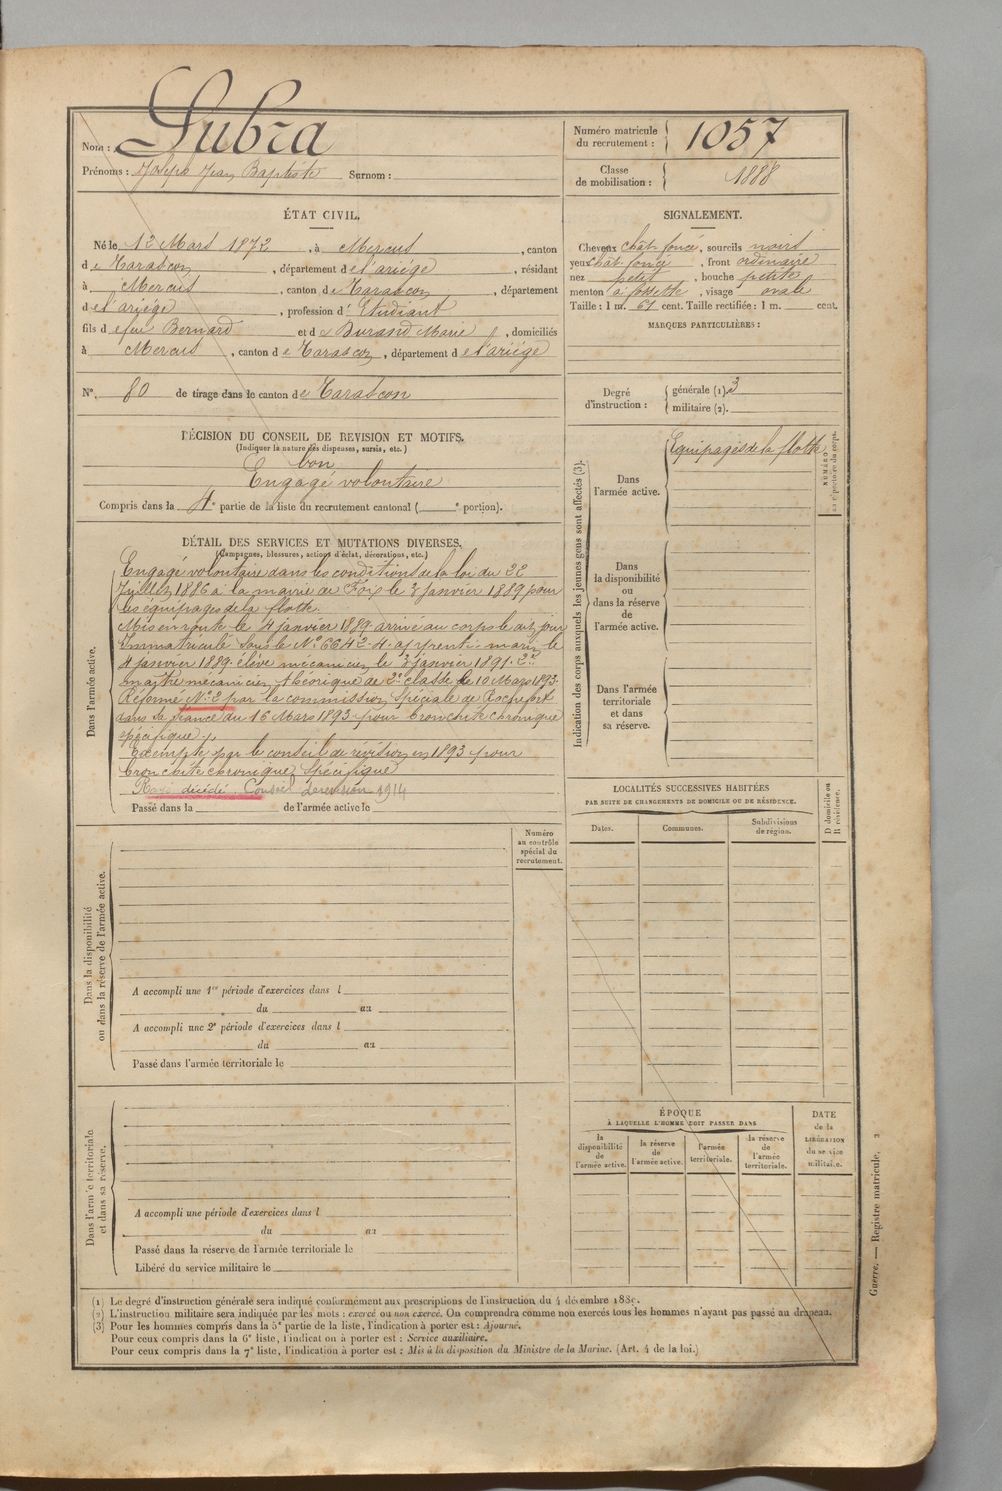 Nom : Lubra
Prénoms : Joseph Jean Baptiste Surnom :
Numéro matricule du recrutement : 1057
Classe de mobilisation : 1888
ÉTAT CIVIL.
Né le 12 Mars 1872, à Mercus, canton
de Tarascon, département de l'ariége, résidant
à Mercus, canton de Tarascon, département
de l'ariége, profession d'Etudiant
fils de feu Bernard et de Durand Marie, domiciliés
à Mercus, canton de Tarascon, département de l'ariége
No. 80 de tirage dans le canton de Tarascon
DÉCISION DU CONSEIL DE REVISION ET MOTIFS.
(Indiquer la nature des dispenses, sursis, etc.)
bon
Engagé volontaire
Compris dans la 4e partie de la liste du recrutement cantonal ( e portion).
SIGNALEMENT.
Cheveux chât. foncé, sourcils noirs
yeux chât. foncé, front ordinaire
nez petit, bouche petite
menton à fossette, visage ovale
Taille : 1 m. 67 cent. Taille rectifiée : 1 m. cent.
MARQUES PARTICULIÈRES :
Degré d'instruction : générale (1). 3
militaire (2).
Indication des corps auxquels les jeunes gens sont affectés (3).
Dans l'armée active. Equipages de la flotte
Dans la disponibilité ou dans la réserve de l'armée active.
Dans l'armée territoriale et dans sa réserve.
NUMÉRO au répertoire du corps.
DÉTAIL DES SERVICES ET MUTATIONS DIVERSES.
(Campagnes, blessures, actions d'éclat, décorations, etc.)
Dans l'armée active.
Engagé volontaire dans les conditions de la loi du 22
Juillet 1886 à la mairie de Foix le 3 janvier 1889 pour
les équipages de la flotte.
Mis en route le 4 janvier 1889 arrivé au corps le dit jour
Immatriculé sous le No 6642-4. apprenti-marin le
4 janvier 1889. élève mécanicien le 3 janvier 1891. 2d
maître mécanicien théorique de 2e classe le 10 Mars 1893.
Réformé No 2 par la commission spéciale de Rochefort
dans sa séance du 16 Mars 1893 pour bronchite chronique
spécifique
Exempté par le conseil de révision en 1893 pour
bronchite chronique spécifique
Rayé décédé. Conseil de revision 1914
Passé dans la de l'armée active le
Dans la disponibilité ou dans la réserve de l'armée active.
Numéro au contrôle spécial du recrutement.
A accompli une 1re période d'exercices dans l
du au
A accompli une 2e période d'exercices dans l
du au
Passé dans l'armée territoriale le
Dans l'armée territoriale et dans sa réserve.
A accompli une période d'exercices dans l
du au
Passé dans la réserve de l'armée territoriale le
Libéré du service militaire le
LOCALITÉS SUCCESSIVES HABITÉES
PAR SUITE DE CHANGEMENTS DE DOMICILE OU DE RÉSIDENCE.
Dates. Communes. Subdivisions de région. D domicile ou R résidence.
ÉPOQUE
À LAQUELLE L'HOMME DOIT PASSER DANS
la disponibilité de l'armée active.
la réserve de l'armée active.
l'armée territoriale.
la réserve de l'armée territoriale.
DATE de la LIBÉRATION du service militaire.
Guerre. — Registre matricule.
(1) Le degré d'instruction générale sera indiqué conformément aux prescriptions de l'instruction du 4 décembre 1889.
(2) L'instruction militaire sera indiquée par les mots : exercé ou non exercé. On comprendra comme non exercés tous les hommes n'ayant pas passé au drapeau.
(3) Pour les hommes compris dans la 5e partie de la liste, l'indication à porter est : Ajourné.
Pour ceux compris dans la 6e liste, l'indication à porter est : Service auxiliaire.
Pour ceux compris dans la 7e liste, l'indication à porter est : Mis à la disposition du Ministre de la Marine. (Art. 4 de la loi.)